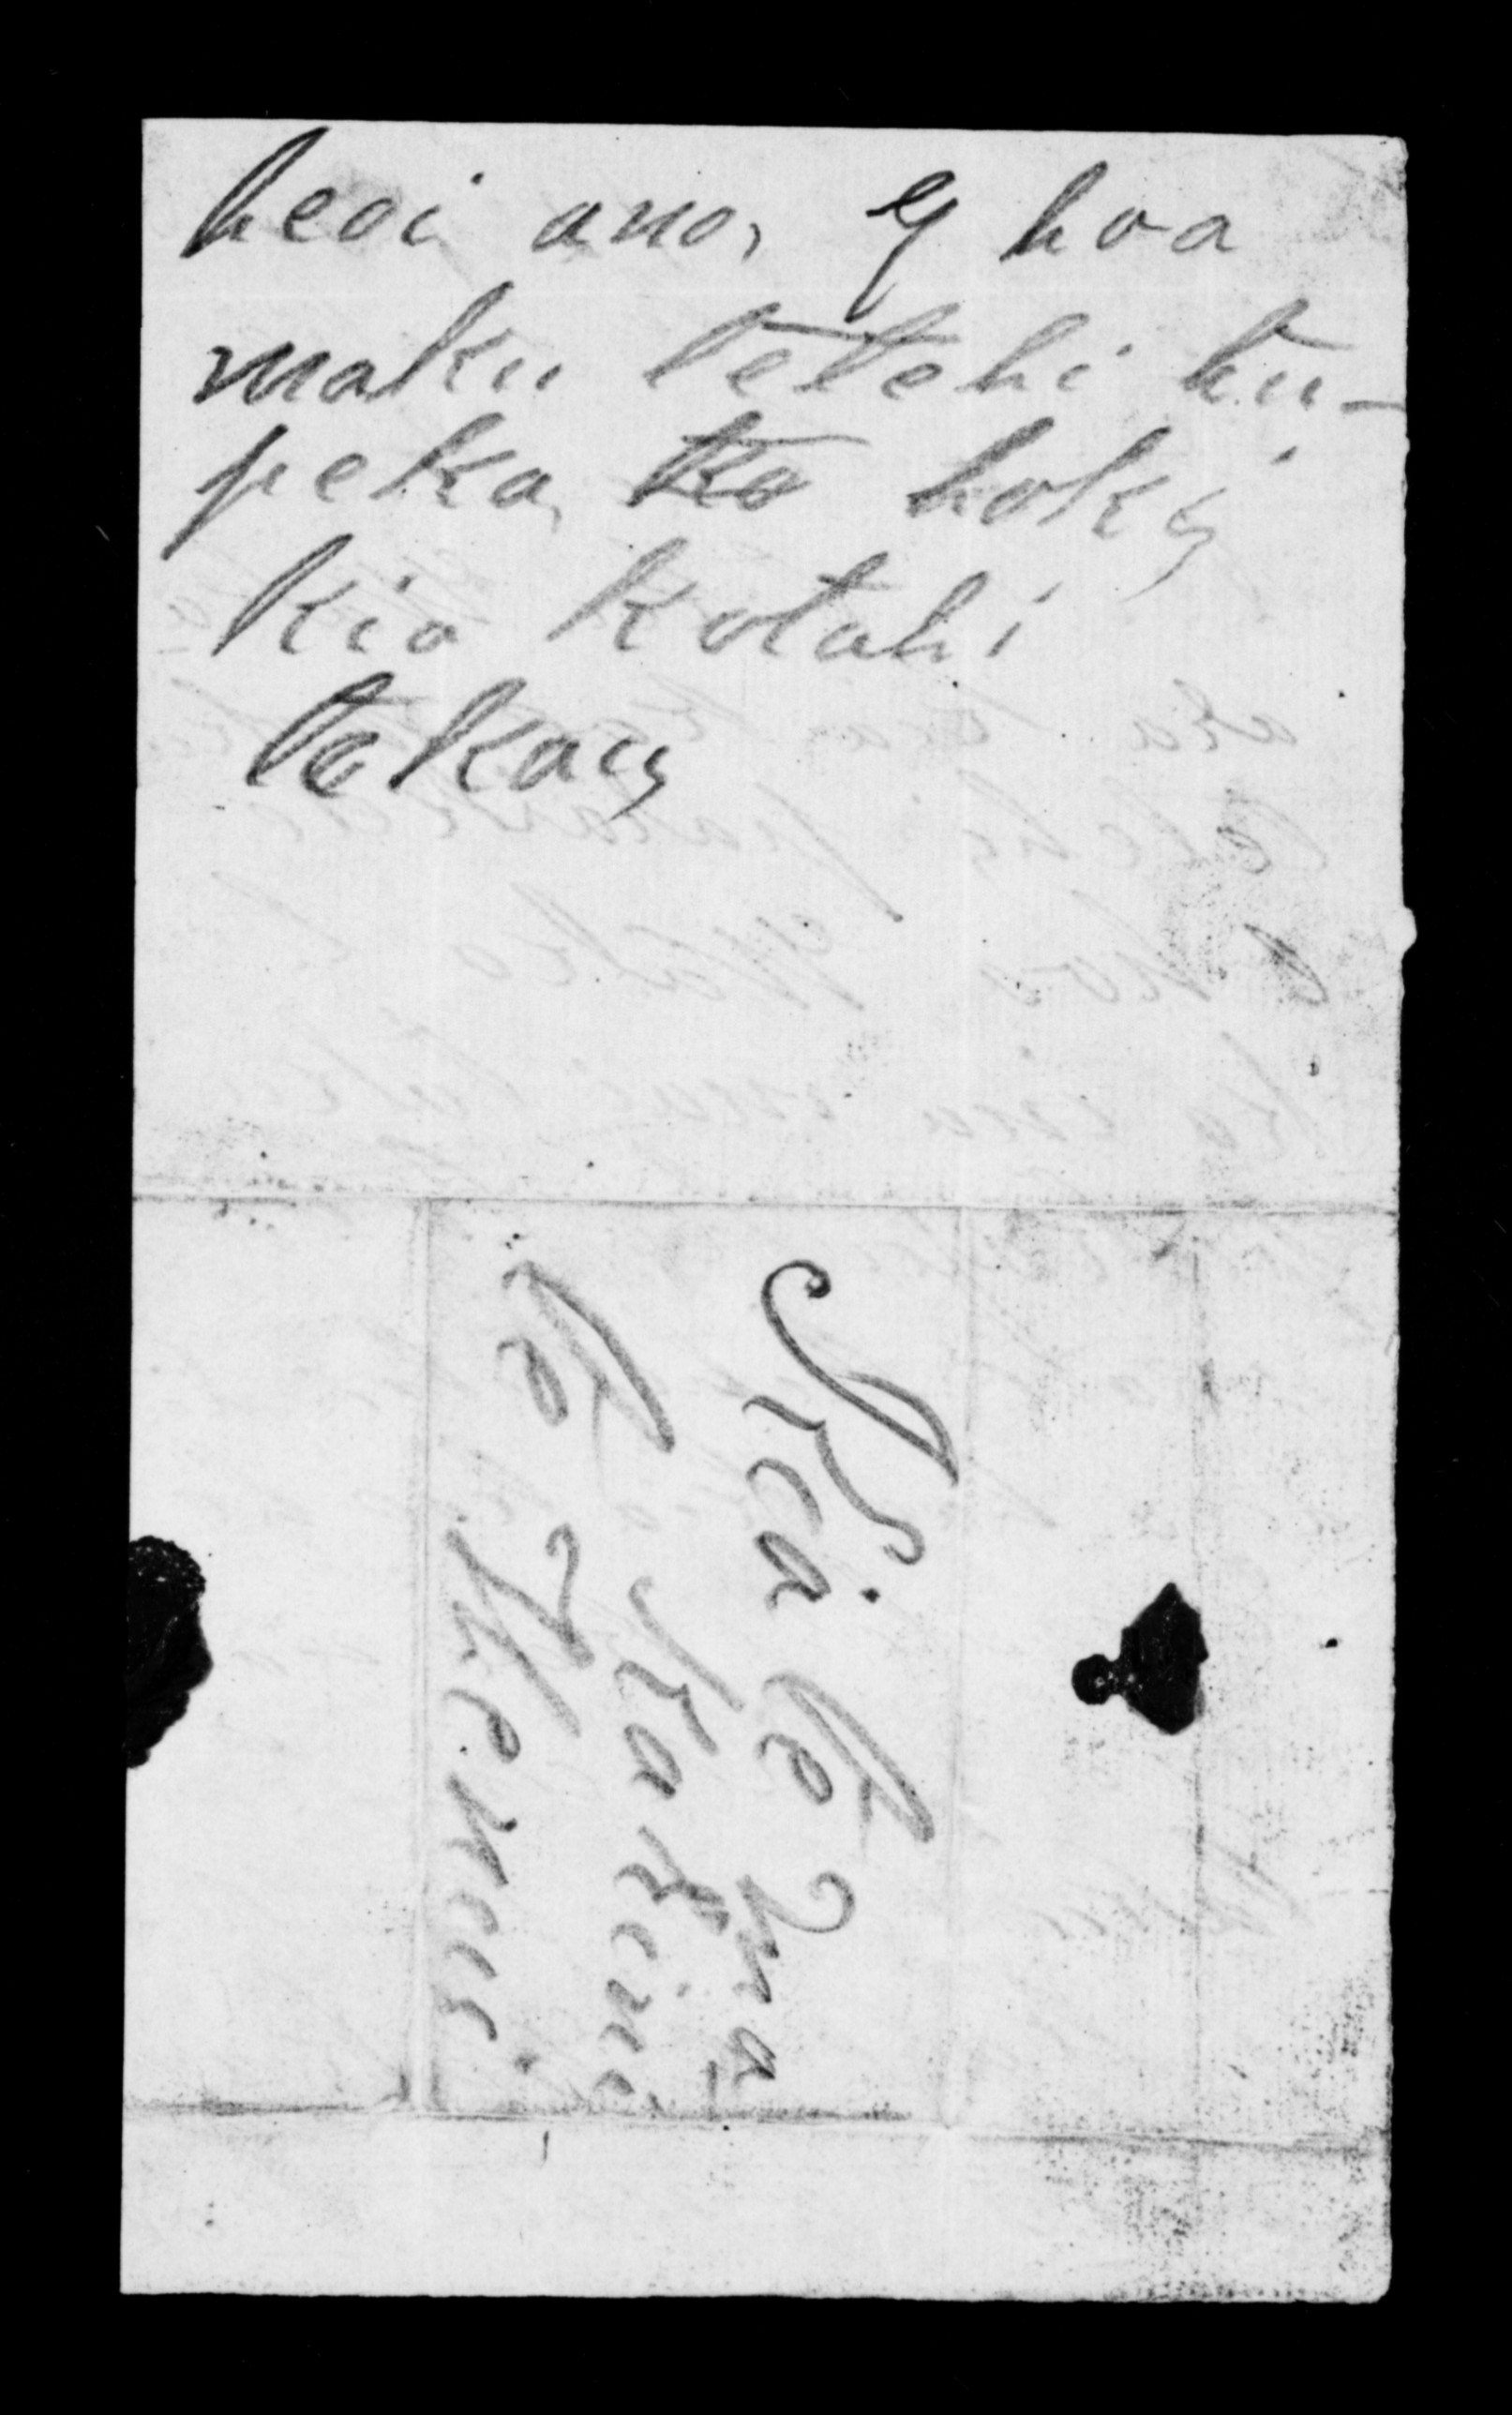 heoi ano, E hoa
maku tetehi tu-
peka, ko hoki,
kia kotahi
tekau,
Kia te ma
karini
te Wenui